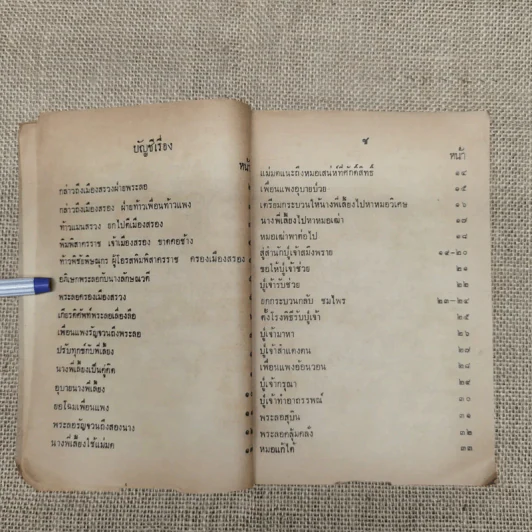 บัญชีเรื่อง
หน้า
กล่าวถึงเมืองสรวงฝ่ายพระลอ
กล่าวถึงเมืองสรอง ฝ่ายท้าวเพื่อนท้าวแพง
ท้าวแมนสรวง ยกไปตีเมืองสรอง
พิมพิสาครราช เจ้าเมืองสรอง ขาดคอช้าง
ท้าวพิชัยพิษณุกร ผู้โอรสพิมพิสาครราช ครองเมืองสรอง
อภิเษกพระลอกับนางลักษณวดี
พระลอครองเมืองสรวง
เกียรติศัพท์พระลอเลื่องลือ
เพื่อนแพงรัญจวนถึงพระลอ
ปรับทุกข์กับพี่เลี้ยง
นางพี่เลี้ยงเป็นคู่คิด
อุบายนางพี่เลี้ยง
ยอโฉมเพื่อนแพง
พระลอรัญจวนถึงสองนาง
นางพี่เลี้ยงใช้แม่มด
หน้า
แม่มดแนะถึงหมอเสน่ห์ที่ศักดิ์สิทธิ์ ๑๔
เพื่อนแพงอุบายป่วย ๑๕
เตรียมกระบวนให้นางพี่เลี้ยงไปหาหมอวิเศษ ๑๖
นางพี่เลี้ยงไปหาหมอเฒ่า ๑๗
หมอเฒ่าพาต่อไป ๑๘
สู่สำนักปู่เจ้าสมิงพราย ๑๙-๒๐
ขอให้ปู่เจ้าช่วย ๒๑
ปู่เจ้ารับช่วย ๒๒
ยกกระบวนกลับ ชมไพร ๒๓-๒๔
ตั้งโรงพิธีรับปู่เจ้า ๒๕
ปู่เจ้ามาหา ๒๖
ปู่เจ้าสำแดงตน ๒๗
เพื่อนแพงอ้อนวอน ๒๘
ปู่เจ้ากรุณา ๒๙
ปู่เจ้าทำอาถรรพณ์ ๓๐
พระลอสุบิน ๓๑
พระลอคลุ้มคลั่ง ๓๒
หมอแก้ได้ ๓๓